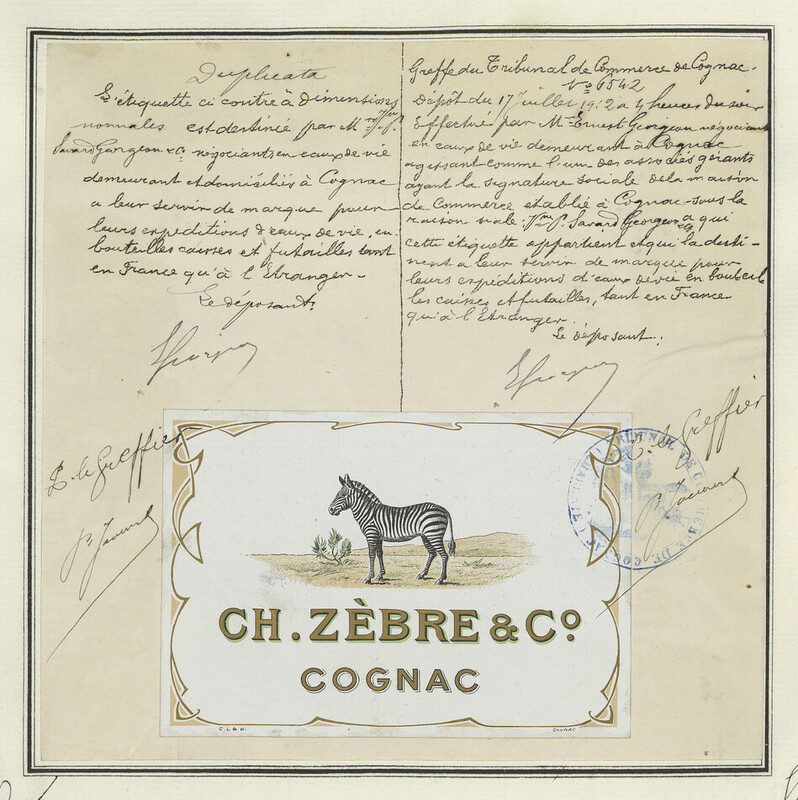 Duplicata
L'étiquette ci contre à dimensions
normales est destinée par M.rs Jme P.
Savard Georgeon & Co négociants en eaux de vie
demeurant et domiciliés à Cognac
a leur servir de marque pour
leurs expéditions d'eaux de vie, en
bouteilles caisses et futailles tant
en France qu'à l'Etranger -
Le déposant,
P. le Greffier
Greffe du Tribunal de Commerce de Cognac.
No 6542
Dépôt du 17 Juillet 1912 a 4 heures du soir
Effectué par M. Ernest Georgeon négociant
en eaux de vie demeurant à Cognac
agissant comme l'un des associés gérants
ayant la signature sociale de la maison
de Commerce etablié à Cognac sous la
raison siale: Jme P. Savard Georgeon & Co a qui
cette étiquette appartient et qui la desti-
nent a leur servir de marque pour
leurs expéditions d'eaux de vie en bouteil
les caisses et futailles, tant en France
qu'à l'Etranger.
Le déposant.
P. le Greffier
CH. ZÈBRE & Co
COGNAC
COGNAC